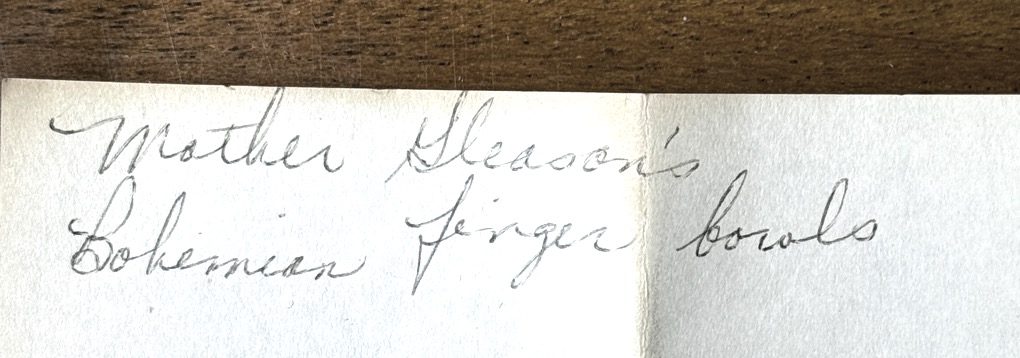 Mother Gleason's
Bohemian finger bowls